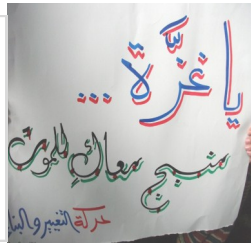 يا غزة ...
منبج معاكِ للموت
حركة التغيير والبنا